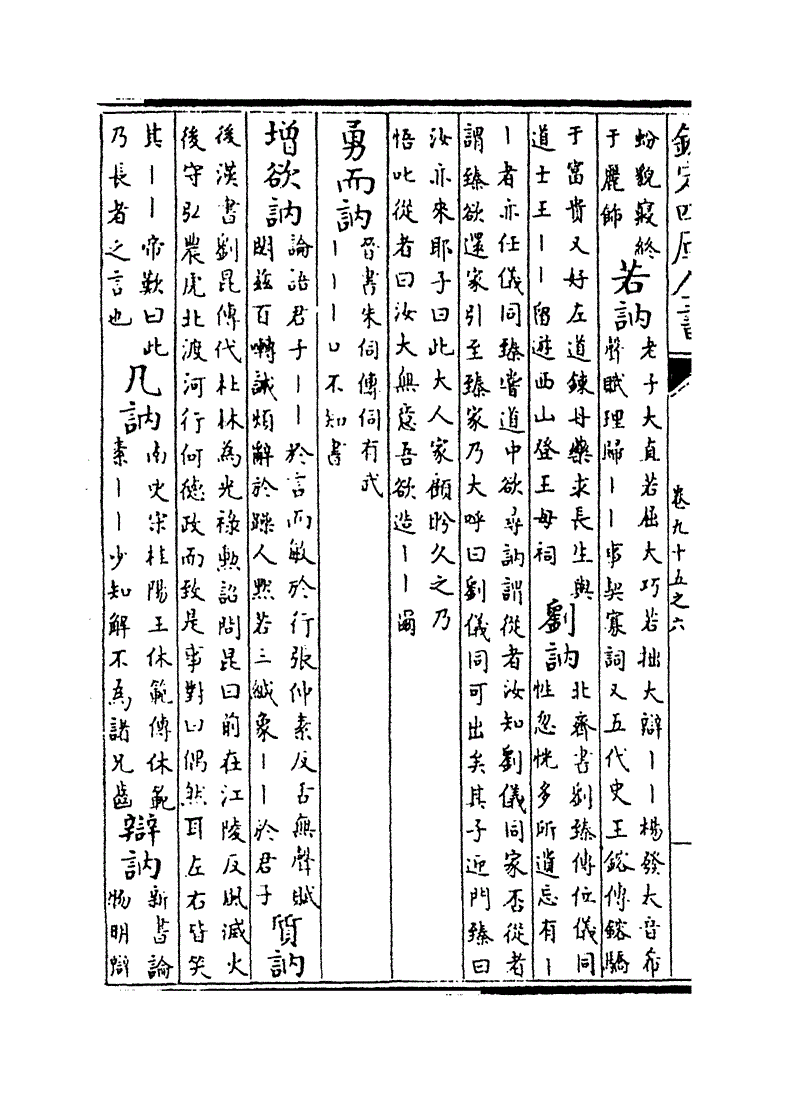 欽定四庫全書
卷九十五之六
一
蚡貌寢終
于麗飾
若訥
老子大直若屈大巧若拙大辯｜｜楊發大音希
聲賦理歸｜｜事契寡詞又五代史王鎔傳鎔驕
于富貴又好左道鍊丹藥求長生與
道士王｜｜留遊西山登王母祠
劉訥
北齊書劉臻傳位儀同
性忽恍多所遺忘有｜
｜者亦任儀同臻嘗道中欲尋訥謂從者汝知劉儀同家否從者
謂臻欲還家引至臻家乃大呼曰劉儀同可出矣其子迎門臻曰
汝亦來耶子曰此大人家顧盼久之乃
悟叱從者曰汝大無意吾欲造｜｜爾
勇而訥
晉書朱伺傳伺有武
｜｜｜口不知書
增欲訥
論語君子｜｜於言而敏於行張仲素反舌無聲賦
閔茲百囀誠煩辭於躁人黙若三緘象｜｜於君子
質訥
後漢書劉昆傳代杜林為光祿勲詔問昆曰前在江陵反風滅火
後守弘農虎北渡河行何德政而致是事對曰偶然耳左右皆笑
其｜｜帝歎曰此
乃長者之言也
凡訥
南史宋桂陽王休範傳休範
素｜｜少知解不為諸兄齒
辯訥
新書論
物明辯